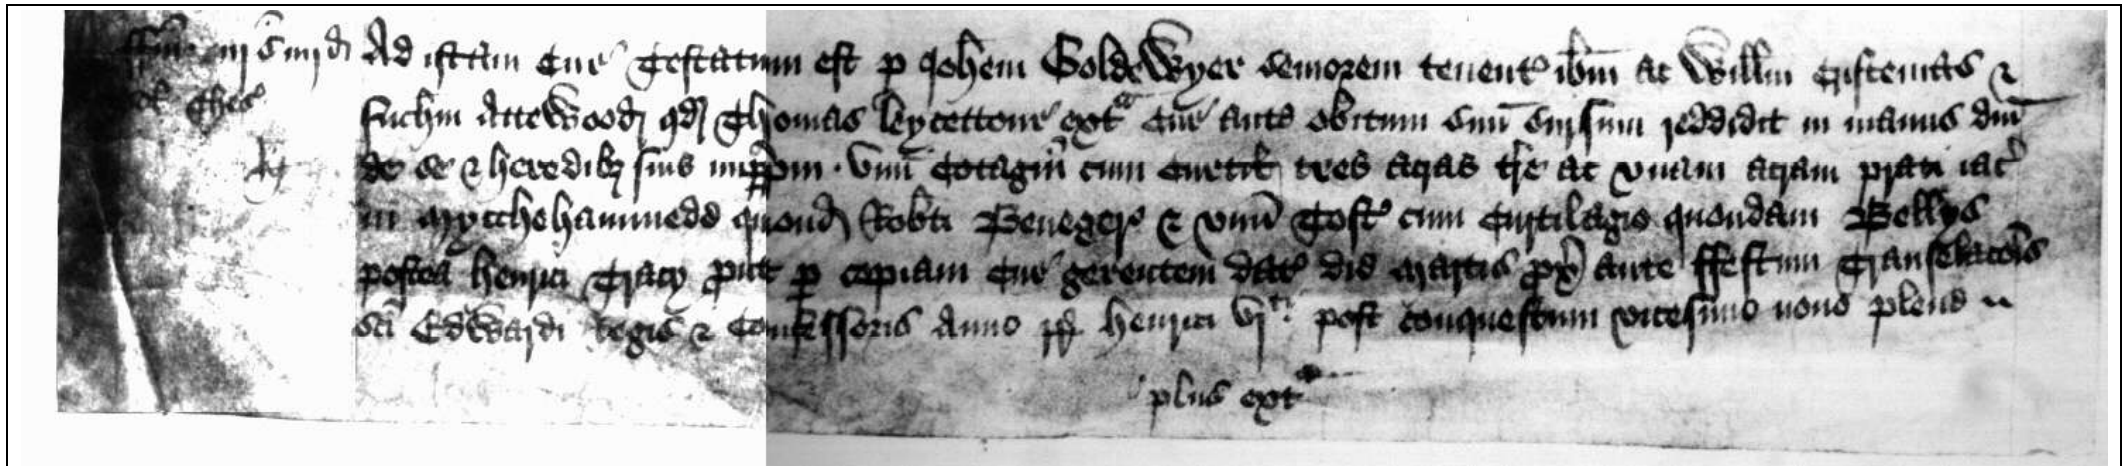 Ad istam Cur' Testatum est p Joh̅em GoldeWyer Seniorem tenent' ib̅m ac Will̅m Custemas &
Joh̅m AtteWood qd Thomas leycettour ext^a Cur' ante obitum suu̅ sursum reddidit in manus dn̅i
de se & heredib3 suis imp̅p̅m . Vnu̅ Cotagiu̅ cum Curtil' tres acras t're ac vnam acram prati iac'
in Mycchehammede quond' Rob̅ti Beneger' & vnu̅ Toft' cum Curtilagio quondam Bellys
postea Henrici Tracy put p copiam Cur' gerentem dat' die Martis px' ante ffestum Translac̅o̅is
Sc̅i Edwardi Regis & Confessoris Anno rr Henrici vj^ti post conquestum vicesimo nono plene
plus ext^a